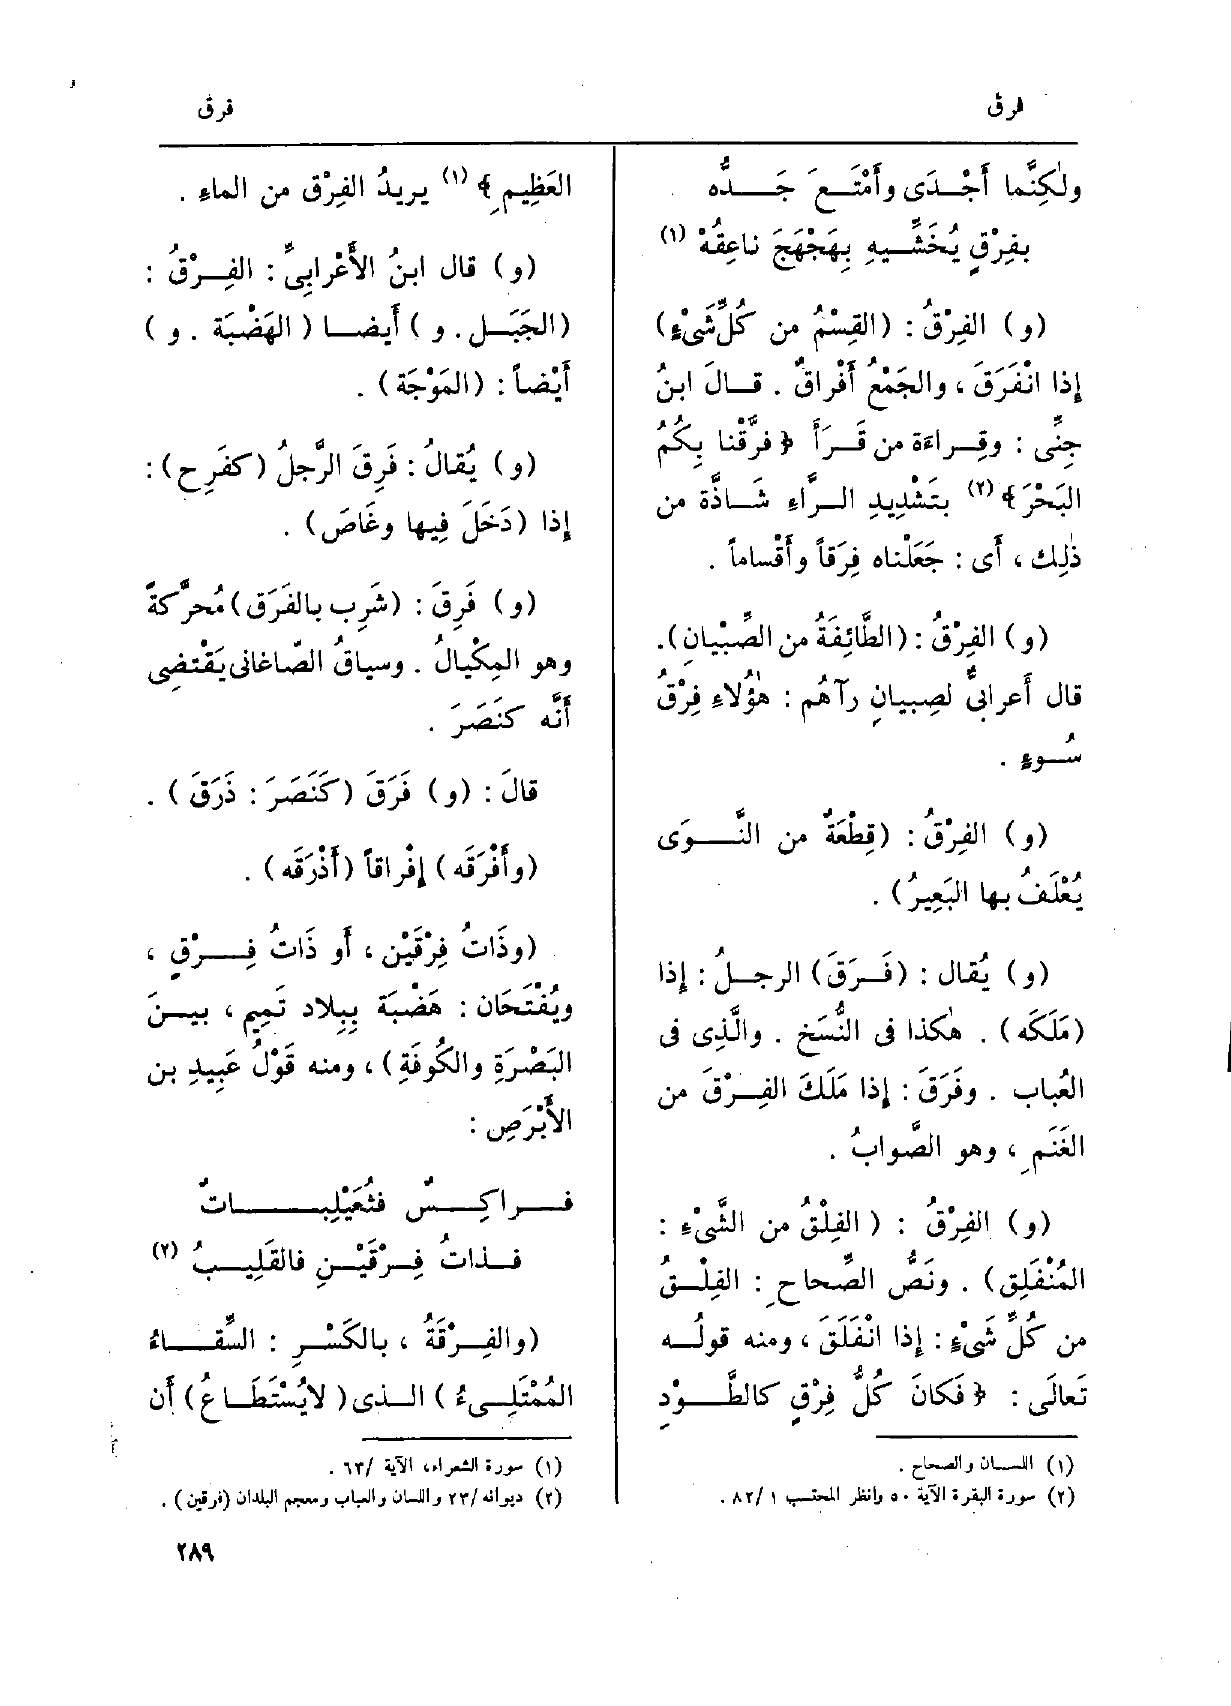 فرق
فرق
ولٰكِنَّما أَجْدَى وأَمْتَعَ جَدُّه
بفِرْقٍ يُخَشِّيهِ بِهَجْهَجَ ناعِقُهْ (١)
(و) الفِرْقُ : (القِسْمُ من كُلِّ شَىْءٍ)
إذا انْفَرَقَ ، والجَمْعُ أَفْراقٌ . قالَ ابنُ
جِنِّى : وقِراءَة من قَرَأَ ﴿ فرَّقْنا بِكُمُ
البَحْرَ﴾ (٢) بتَشْدِيدِ الرَّاءِ شَاذَّة من
ذٰلِك ، أَى : جَعَلْناه فِرَقاً وأَقْساماً .
(و) الفِرْقُ : (الطَّائِفَةُ من الصِّبْيانِ).
قال أَعرابىٌّ لصِبيانٍ رآهُم : هٰؤُلاءِ فِرْقُ
سُوءٍ .
(و) الفِرْقُ : (قِطْعَةٌ من النَّوَى
يُعْلَفُ بها البَعِيرُ) .
(و) يُقال : (فَرَقَ) الرجلُ : إذا
(مَلَكَه) . هٰكذا فى النُّسَخ . والَّذِى فى
العُباب . وفَرَقَ : إذا مَلَكَ الفِرْقَ من
الغَنَمِ ، وهو الصَّوابُ .
(و) الفِرْقُ : ( الفِلْقُ من الشَّىْءِ :
المُنْفَلِق) . ونَصُّ الصِّحاحِ : الفِلْقُ
من كُلِّ شَىْءٍ : إذا انْفَلَقَ ، ومنه قولُه
تَعالَى : ﴿ فَكانَ كُلُّ فِرْقٍ كالطَّوْدِ
(١) اللسان والصحاح .
(٢) سورة البقرة الآية ٥٠ وانظر المحتسب ١ /٨٢ .
العَظِيمِ﴾ (١) يريدُ الفِرْق من الماءِ .
(و) قال ابنُ الأَعْرابِىِّ : الفِرْقُ :
(الجَبَل . و ) أَيضا ( الهَضْبَة . و )
أَيْضاً : (المَوْجَة) .
(و) يُقالُ : فَرِقَ الرَّجلُ (كفَرِح) :
إذا (دَخَلَ فِيها وغَاصَ) .
(و) فَرِقَ : (شَرِب بالفَرَق) مُحرَّكةً
وهو المِكْيالُ . وسياقُ الصّاغانى يَقْتضِى
أَنَّه كنَصَرَ .
قالَ : (و) فَرَقَ (كَنَصَرَ : ذَرَقَ ) .
(وأَفْرَقَه) إفْراقاً (أَذْرَقَه) .
(وذَاتُ فِرْقَيْن ، أَو ذَاتُ فِرْقٍ ،
ويُفْتَحَان : هَضْبَة بِبِلاد تَمِيم ، بينَ
البَصْرَةِ والكُوفَةِ) ، ومنه قَوْلُ عَبِيدِ بن
الأَبْرَصِ :
فراكِسٌ فثُعَيْلِباتٌ
فذاتُ فِرْقَيْنِ فالقَلِيبُ (٢)
(والفِرْقَةُ ، بالكَسْرِ : السِّقاءُ
المُمْتَلِىءُ ) الذى ( لا يُسْتَطَاعُ ) أَن
(١) سورة الشعراء، الآية /٦٣ .
(٢) ديوانه /٢٣ واللسان والعباب ومعجم البلدان (فرقين) .
٢٨٩